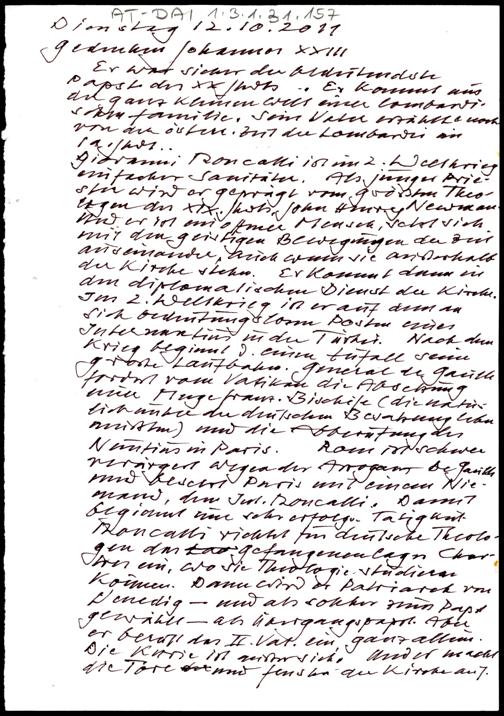 AT-DAI 1.3.1.31.157
Dienstag 12.10.2011
Gedenken Johannes XXIII
Er war sicher der bedeutendste
Papst des XX. Jhdts .. Er kommt aus
der ganz kleinen Welt einer lombardi-
schen Familie. Sein Vater erzählte noch
von der österr. Zeit der Lombardei im
19. Jhdt..
Giovanni Roncalli ist im 2. Weltkrieg
einfacher Sanitäter. Als junger Prie-
ster wird er geprägt vom grossen Theo-
logen des XIX. Jhdts, John Henry Newman
Und er ist ein Mensch, setzt sich
mit den geistigen Bewegungen der Zeit
auseinander, auch wenn sie ausserhalb
der Kirche stehn. Er kommt dann in
den diplomatischen Dienst der Kirche.
Im 2. Weltkrieg ist er auf dem an
sich bedeutungslosen Posten eines
Internuntius in der Türkei. Nach dem
Krieg beginnt d. einen Zufall seine
grosse Laufbahn. General de Gaulle
fordert vom Vatikan die Absetzung
einer Menge franz. Bischöfe (die natür-
lich unter der deutschen Besatzung leben
mussten) und die Abberufung des
Nuntius in Paris. Rom ist schwer
verärgert wegen der Arroganz De Gaulles
und besetzt Paris mit einem Nie-
mand, dem Roncalli. Damit
beginnt eine sehr erfolgr. Tätigkeit
Roncalli richtet für deutsche Theolo-
gen das gefangenenlager Char-
tres ein, wo sie Theologie studieren
können. Dann wird er Patriarch von
Venedig – und als solcher zum Papst
gewählt – als Übergangspapst. Aber
er beruft das II. Vat. ein, ganz allein.
Die Kurie ist ausser sich. Und er macht
die Tore und Fenster der Kirche auf.